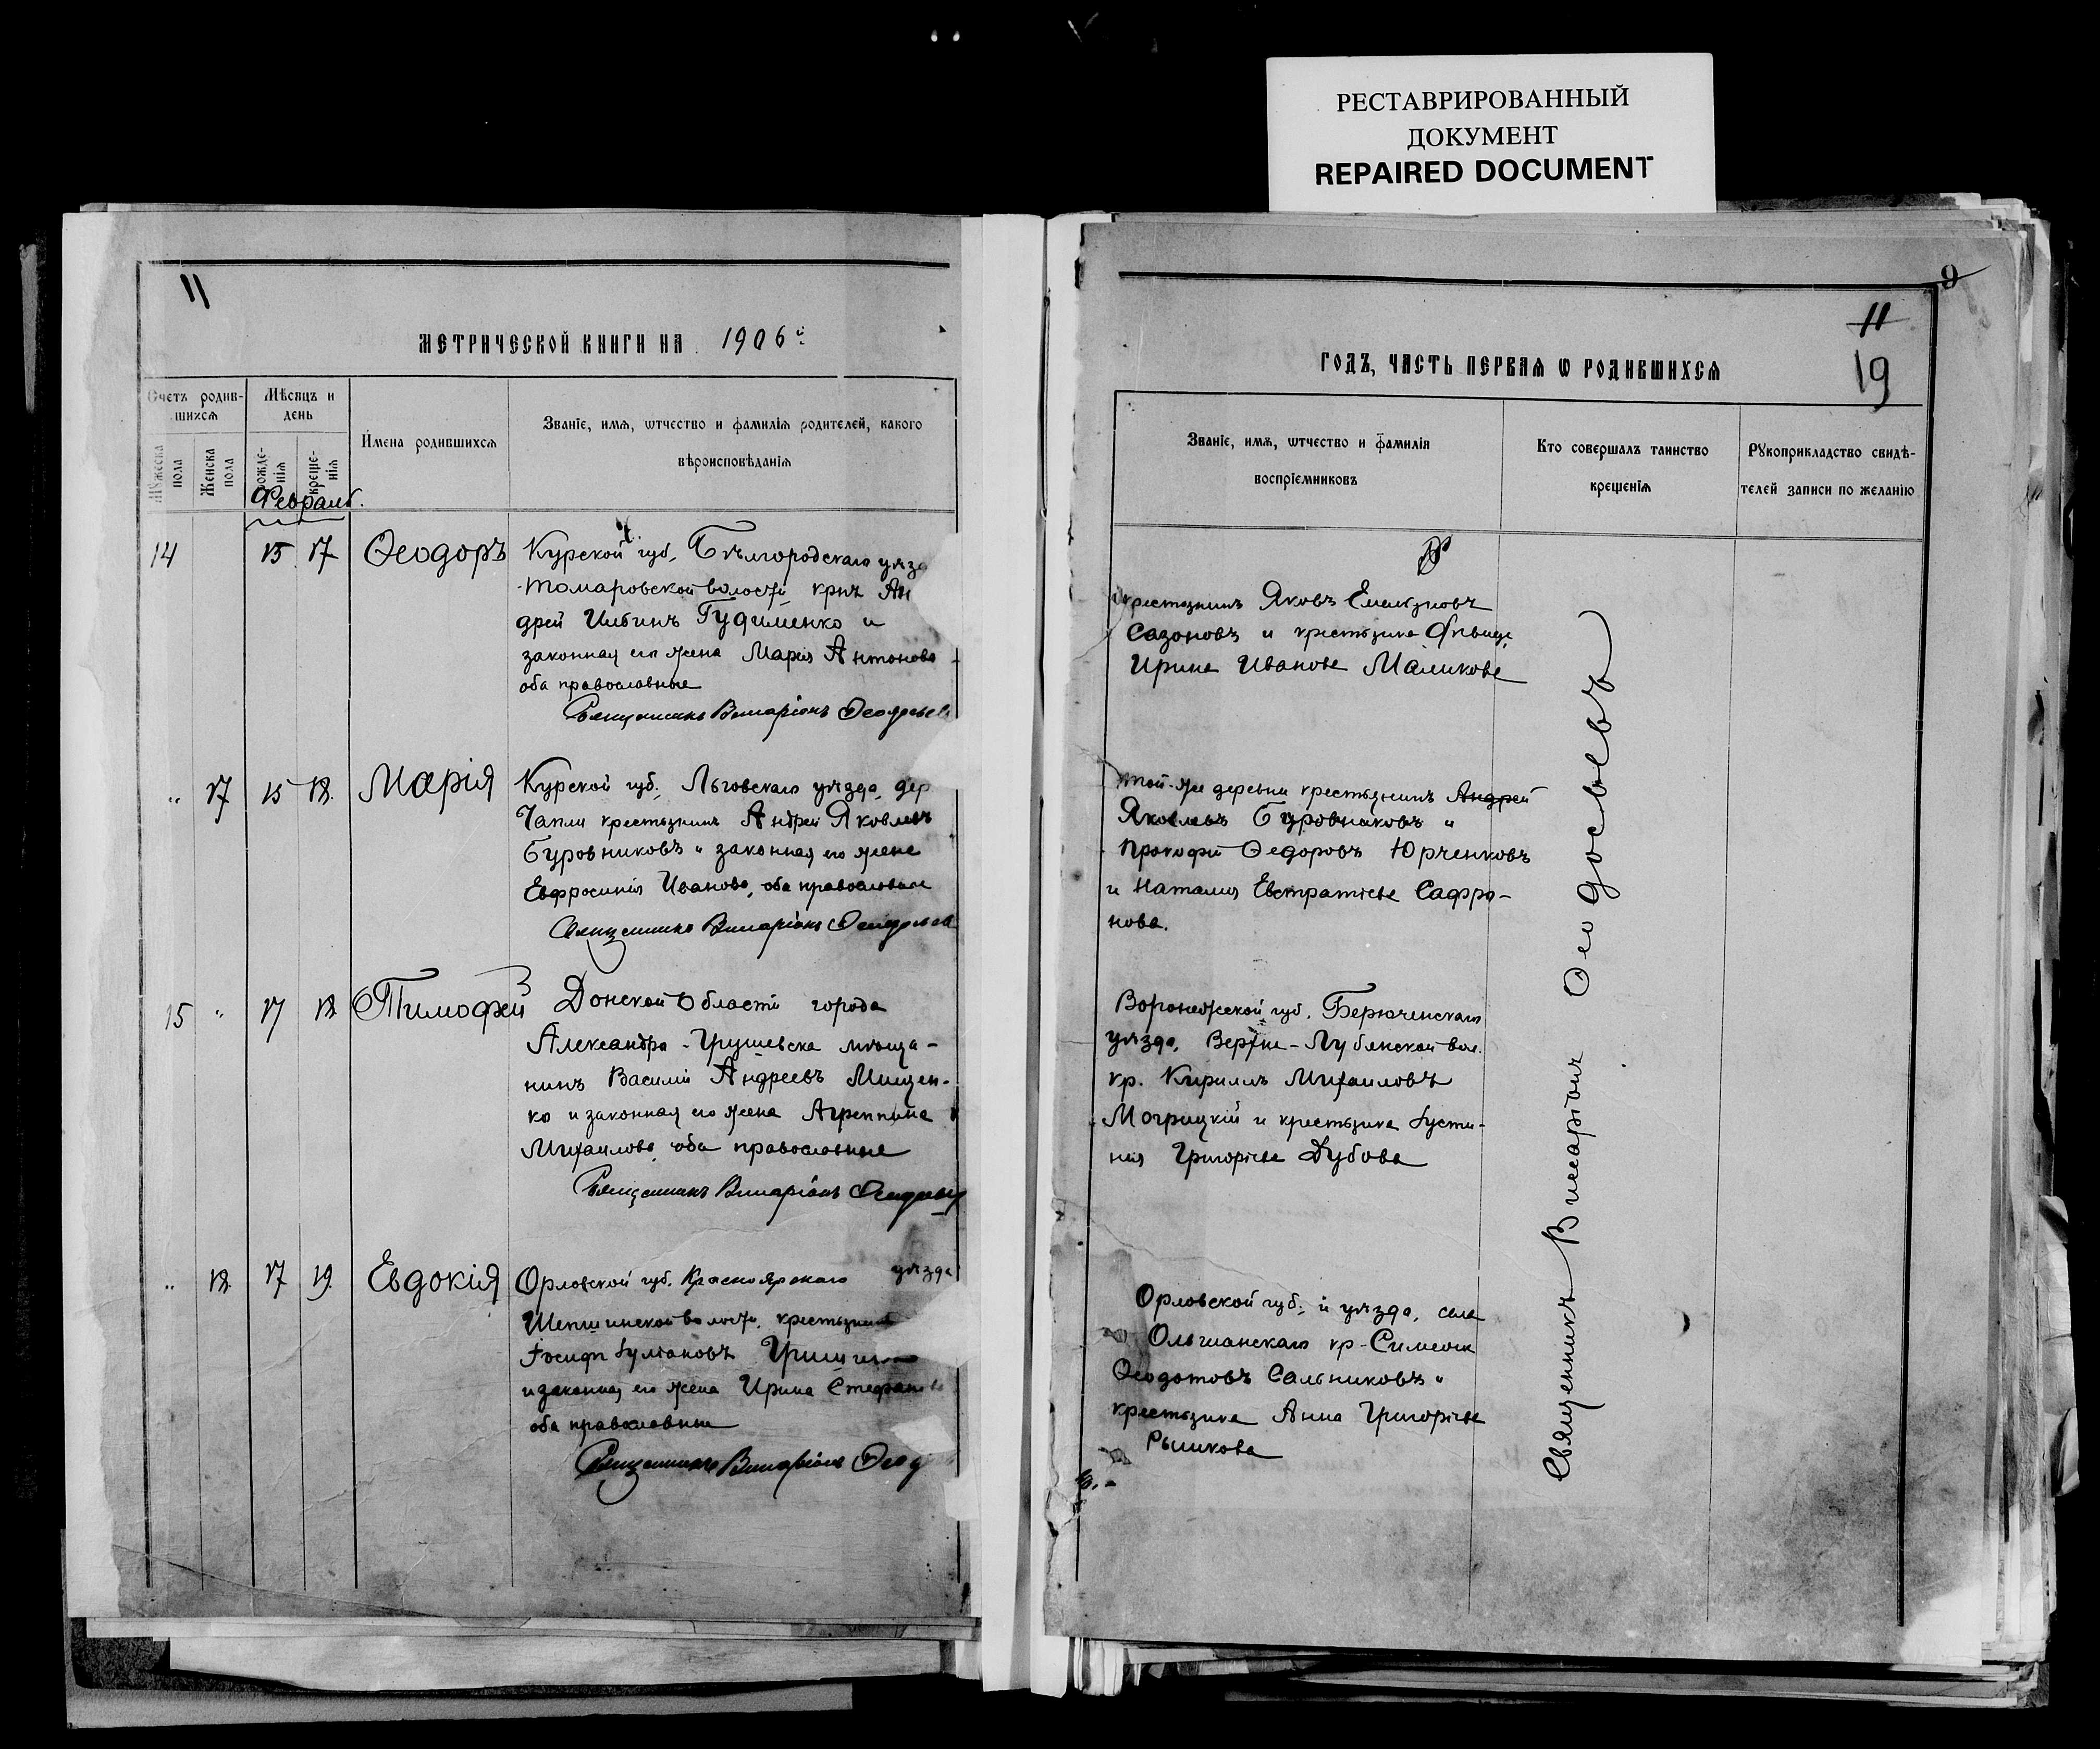 РЕСТАВРИРОВАННЫЙ
ДОКУМЕНТ
REPAIRED DOCUMENT
11
МЕТРИЧЕСКОЙ КНИГИ НА 1906й
Счетъ родив-
шихся
Мѣсяцъ и
день
Мужеска
пола
Женска
пола
рожде-
нія
креще-
нія
Имена родившихся
Званіе, имя, ѡтчество и фамилія родителей, какого
вѣроисповѣданія
Февраль.
14 15 17 Ѳеодоръ
Курской губ. Бѣлгородскаго уѣзд
Томаровской волости крнъ Ан
дрей Ильинъ Гудименко и
законная его жена Марія Антонова
оба православные
Священникъ Виссаріонъ Ѳеодосьев
" 17 15 18. Марія
Курской губ., Льговскаго уѣзда, дер
Чапли крестьянинъ Андрей Яковлевъ
Буровниковъ и законная его жена
Евфросинія Иванова, оба православные
Священникъ Виссаріонъ Ѳеодосьев
15 " 17 18 Тимофей
Донской Области города
Александро-Грушевска мѣща-
нинъ Василій Андреевъ Мищен-
ко и законная его жена Агриппина
Михаилова оба православные
Священникъ Виссаріонъ Ѳеодосьевъ
" 18 17 19. Евдокія
Орловской губ. Красноярскаго уѣзда
волости, крестьянинъ
Іосифъ
и законная его жена Ирина Стефанов
оба православные
Священникъ Виссаріонъ Ѳеод
9
11
19
ГОДЪ, ЧАСТЬ ПЕРВАЯ Ѡ РОДИВШИХСЯ
Званіе, имя, ѡтчество и фамилія
воспріемниковъ
Кто совершалъ таинство
крещенія
Рукоприкладство свидѣ-
телей записи по желанію
крестьянинъ Яковъ Емельяновъ
Сазоновъ и крестьянка дѣвица
Ирина Иванова Маликова
той-же деревни крестьянинъ Андрей
Яковлевъ Буровниковъ и
Прокофій Ѳедоровъ Юрченковъ
и Наталия Евстратіева Сафро-
нова.
Воронежской губ. Берюченскаго
уѣзда, Верхне-Лубянской вол.
кр. Кириллъ Михаиловъ
Могрицкій и крестьянка Іусти-
нія Григоріева Дубова
Орловской губ. и уѣзда, села
Ольшанскаго кр-Симеонъ
Ѳеодотовъ Сальниковъ и
крестьянка Анна Григоріева
Рышкова
Священникъ Виссаріонъ Ѳеодосьевъ